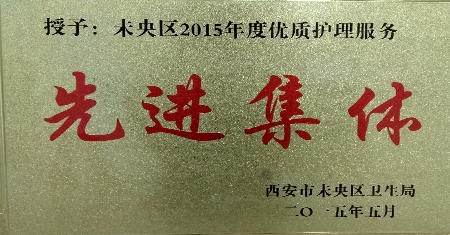 授予：未央区2015年度优质护理服务
先进集体
西安市未央区卫生局
二〇一五年五月